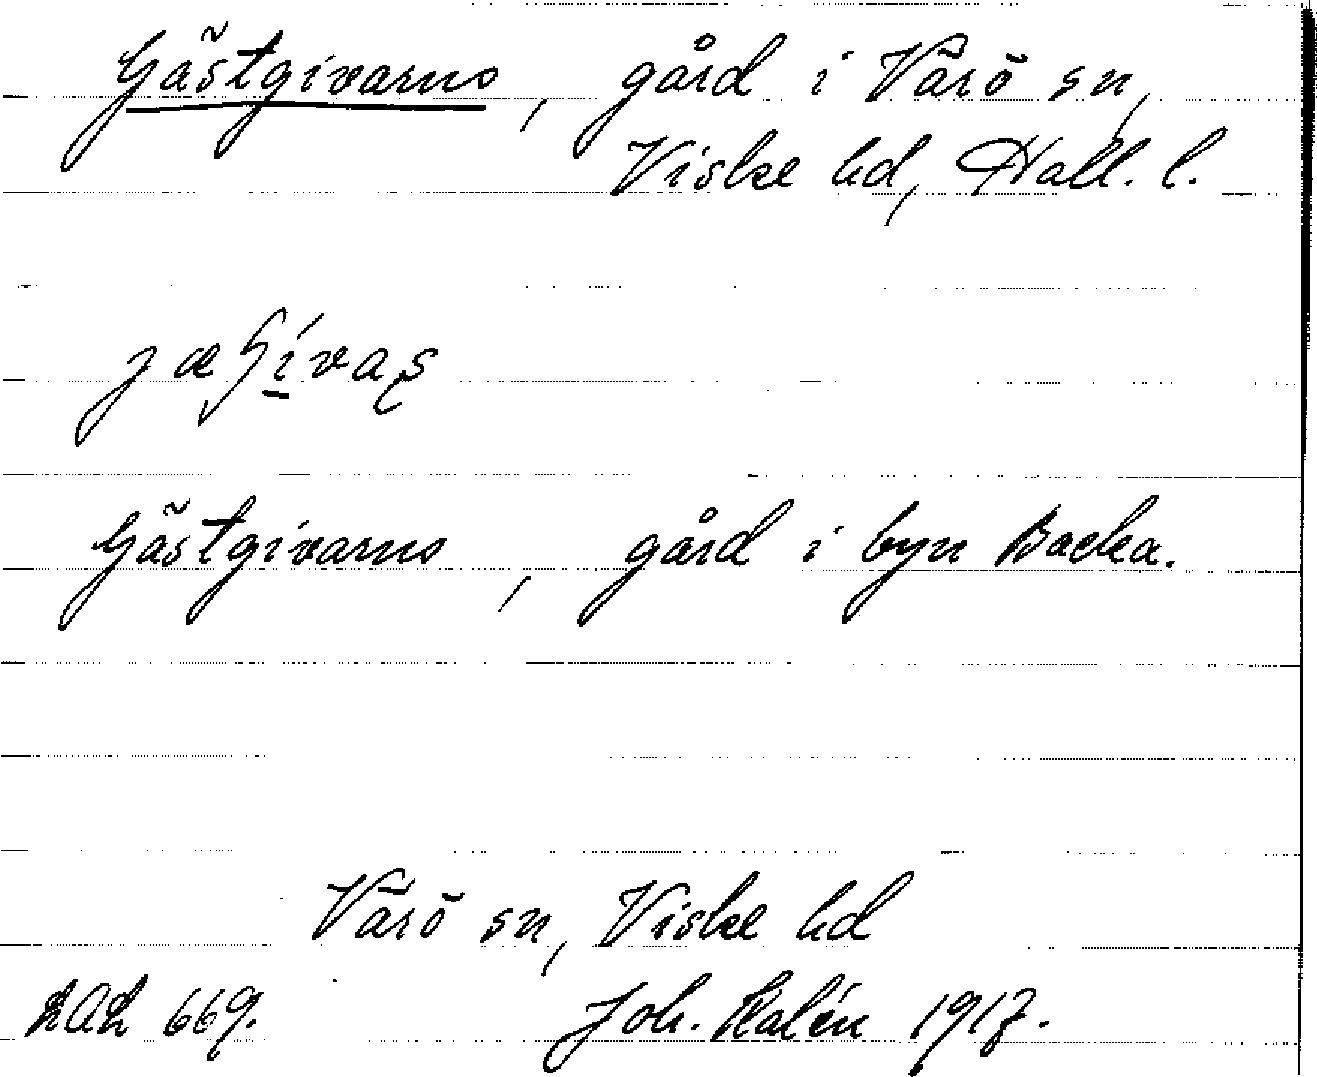 Gästgivarns, gård i Värö sn,
Viske hd, Hall. l.
Gästgivarns, gård i byn Backa.
Värö sn, Viske hd
Joh. Kalén 1917.